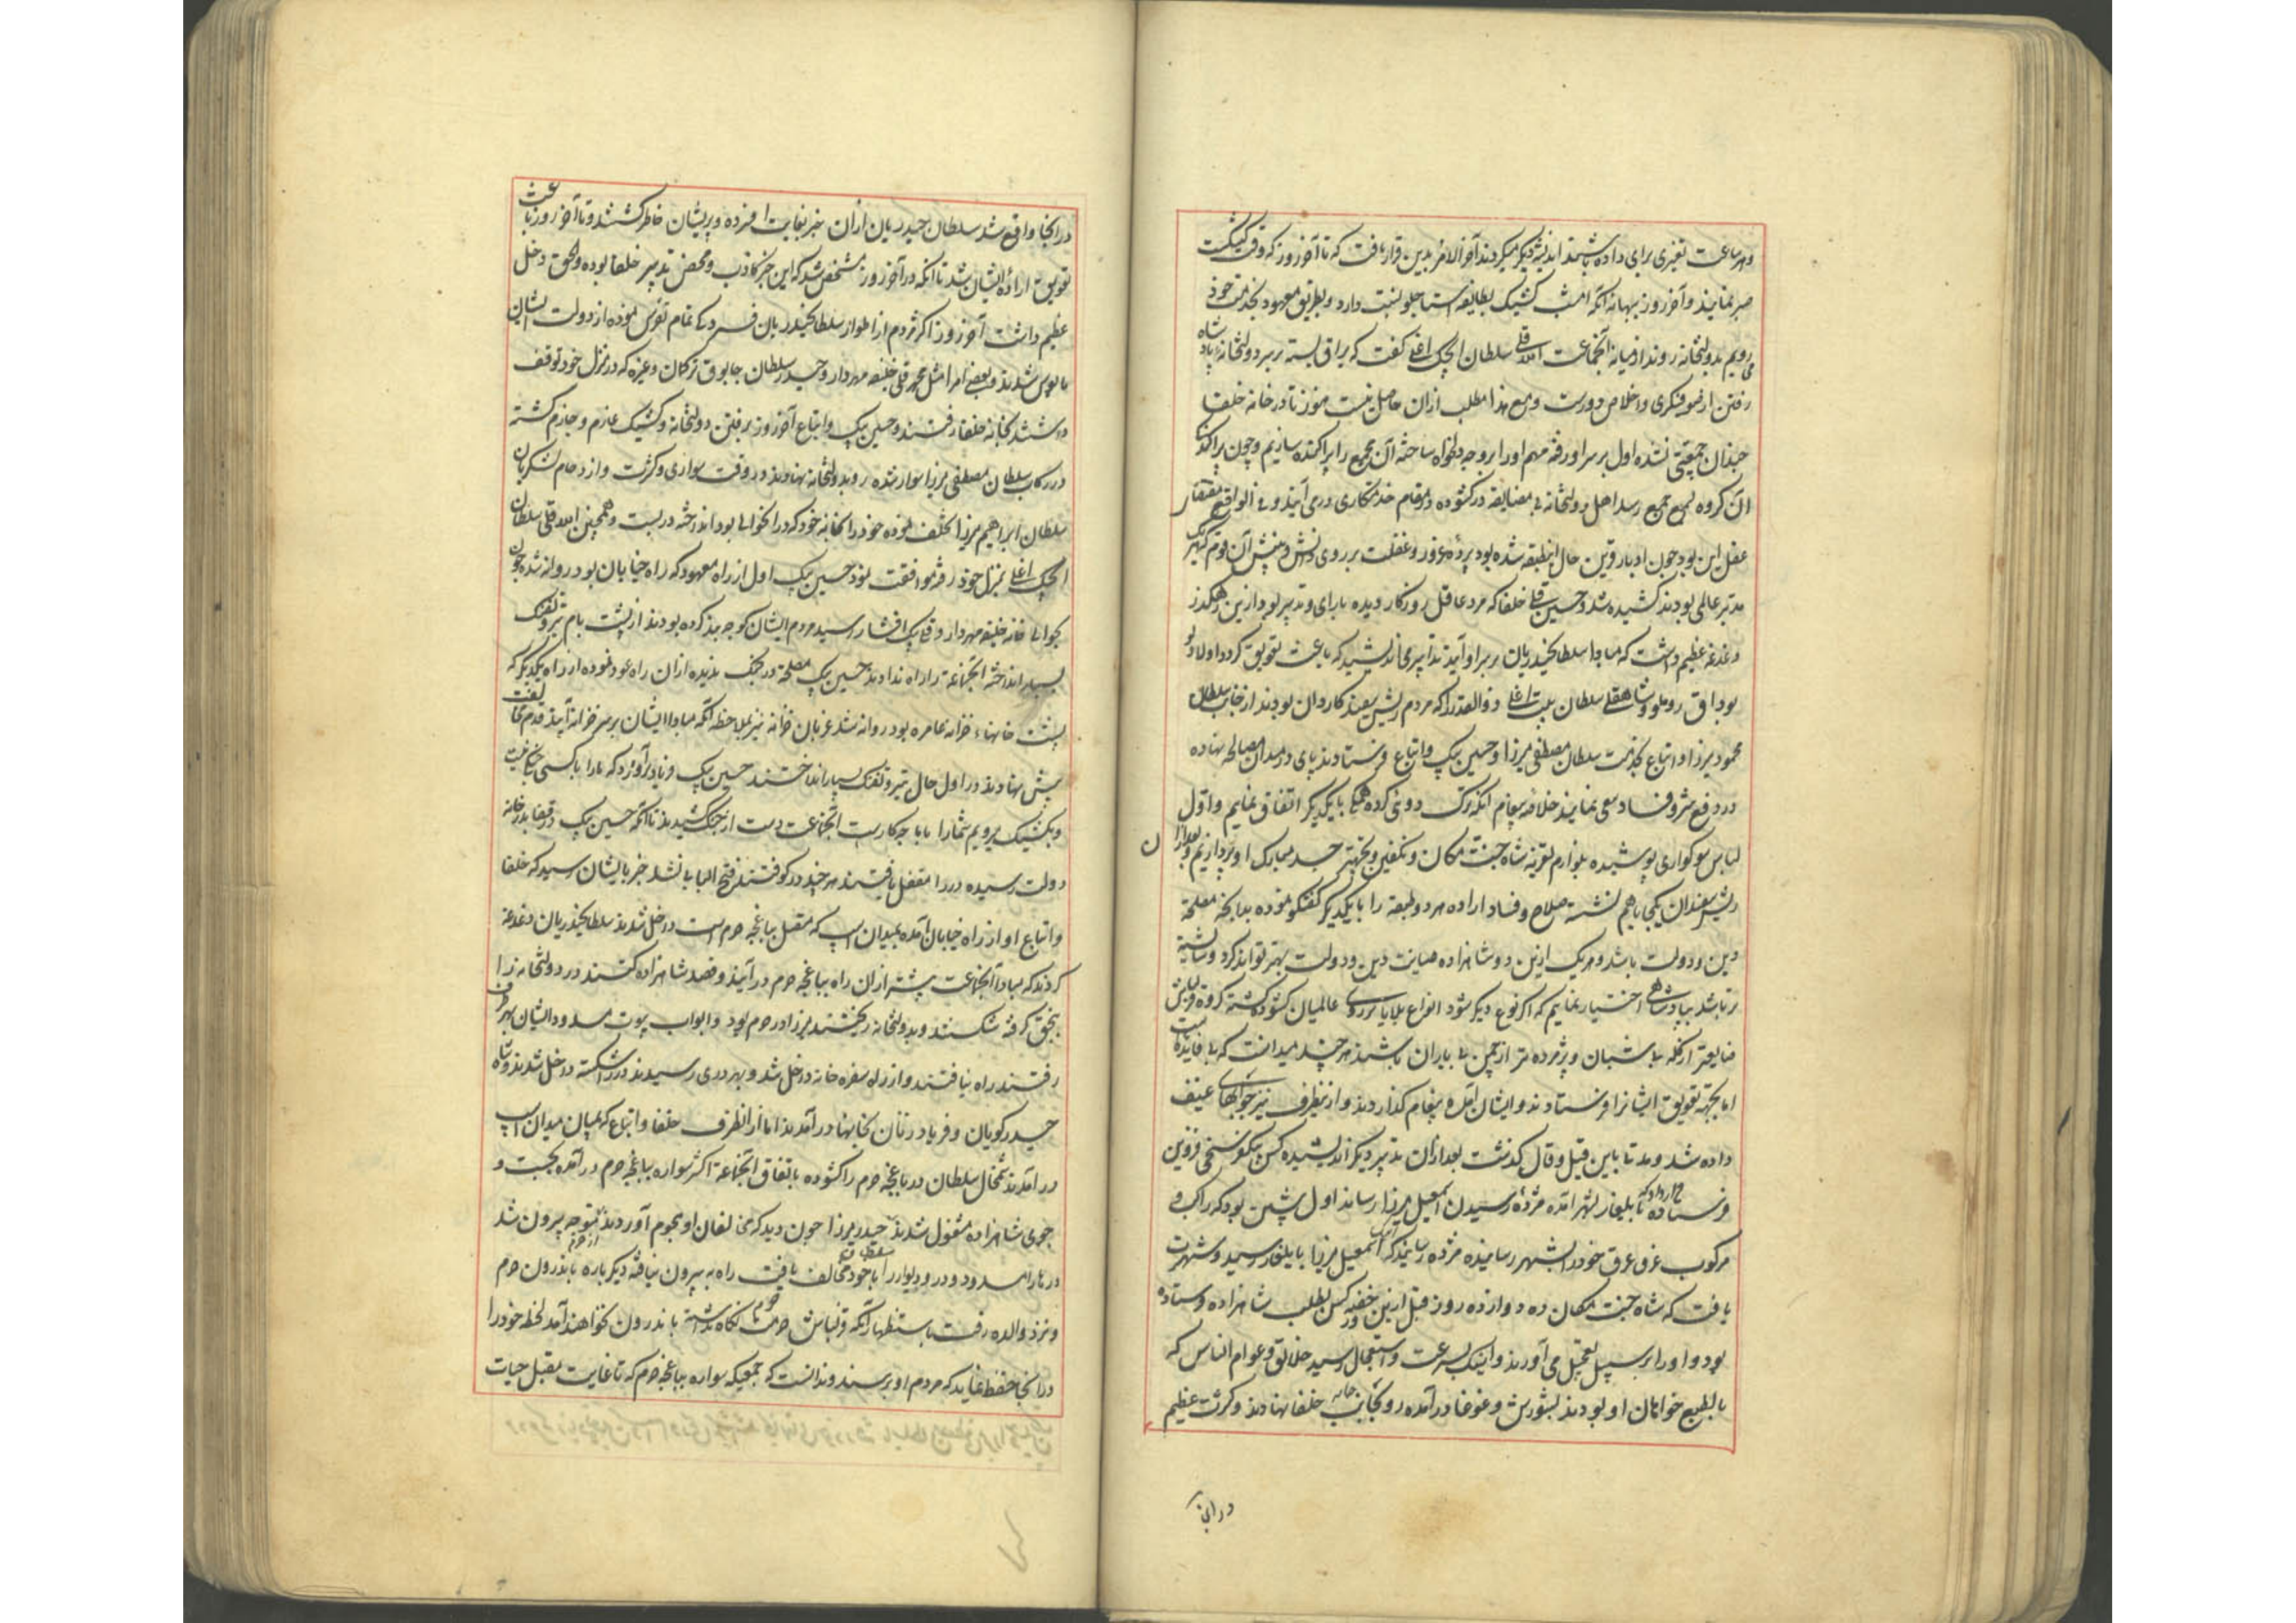 و هر ساعت تغیری برای داده باشند اندیشه دیگر میکردند آخر الامر بدین قرار یافت که تا آخر روز که وقت کشیکست
صبر نمایند و آخر روز ببهانه آنکه امشب کشیک بطایفه استاجلو نسبت دارد و بطریق معهود بخدمت خود
می رویم بدولتخانه روند از میانه آنجماعت الله قلی سلطان ایجک اغلی گفت که یراق بسته بر سر دولتخانه پادشاه
رفتن از صوفیگری و اخلاص دورست و مع هذا مطلب ازان حاصل نیست هنوز تا در خانه خلفا
چندان جمعیتی نشده اول بر سر او رفته مهم او را بر وجه دلخواه ساخته آن مجمع را پراکنده سازیم و چون پراکندگی
آن گروه بسمع جمیع رسد اهل دولتخانه بی مضایقه در گشوده در مقام خدمتکاری در می آیند و فی الواقع مقتضای
عقل این بود چون ادبار قرین حال آنطبقه شده بود پرده غرور و غفلت بر روی دانش و بینش آن قوم که هر یک
مدبر عالمی بودند کشیده شد و حسین قلی خلفا که مرد عاقل روزگار دیده با رای و تدبیر بود ازین رهگذر
دغدغه عظیم داشت که مبادا سلطان حیدریان بر سر او آیند تدابیری اندیشید که باعث تعویق گردد اولا ولو
بوداق روملو و شاهقلی سلطان یبت اغلی ذوالقدر را که مردم ریش سفید کاردان بودند از جانب سلطان
محمود میرزا و اتباع بخدمت سلطان مصطفی میرزا و حسین بیک و اتباع فرستادند پای در میدان مصالحه نهاده
در دفع شر و فساد سعی نمایند خلاصه پیغام آنکه ترک دوئی کرده همگی با یکدیگر اتفاق نمایم و اول
لباس سوکواری پوشیده بلوازم تعزیه شاه جنت مکان و تکفین و تجهیز جسد مبارک او پردازیم و بعد از ان
ریش سفیدان یکجا باهم نشسته صلاح و فساد اراده هر دو طبقه را با یکدیگر گفتگو نموده بدانچه مصلحة
دین و دولت باشد و هر یک ازین دو شاهزاده صیانت دین و دولت بهتر تواند کرد و شایسته
رتبه باشد بپادشاهی اختیار نمایم که اگر نوع دیگر شود انواع بلایا بر روی عالمیان گشوده گشته گروه قزلباش
ضایعتر از گله بی شبان و پژمرده تر از چمن بی باران باشند هر چند میدانست که بی فایده است
اما بجهة تعویق ایشانرا فرستادند و ایشان آمده پیغام گذاردند و ازینطرف نیز جوابهای عنیف
داده شد و مدتی باین قیل و قال گذشت بعد ازان تدبیر دیگر اندیشیده کس بیکوشنجی قزوین
فرستاده قرار داد که بایلغار بشهر آمده مژده رسیدن اسمعیل میرزا رساند اول پیشین بود که راکب و
مرکوب غرق عرق خود را بشهر رسانیده مژده رسانید که اسمعیل میرزا بایلغار رسید و شهرت
یافت که شاه جنت مکان ده دوازده روز قبل ازین خفیه کس بطلب شاهزاده فرستاده
بود و او را بر سبیل تعجیل می آوردند و اینک بسرعت و استعجال رسید خلایق و عوام الناس که
بالطبع خواهان او بودند بشورش و غوغا درآمده رو بجانب خانه خلفا نهادند و کثرت عظیم
در انجا
در انجا واقع شد سلطان حیدریان ازان خبر بغایت افسرده و پریشان خاطر گشتند و تا آخر روز باعث
تعویق اراده ایشان شد تا آنکه در آخر روز مشخص شد که این خبر کاذب و محض تدبیر خلفا بوده و الحق دخل
عظیم داشت آخر روز اکثر مردم از اطوار سلطان حیدریان فسردگی تمام تفرس نموده از دولت ایشان
مایوس شدند و بعضی امرا مثل محمد قلی خلیفه مهردار و حیدر سلطان جابوق ترکمان و غیره که در منزل خود توقف
داشتند بخانه خلفا رفتند و حسین بیک و اتباع آخر روز برفتن دولتخانه و کشیک عازم و جازم گشته
در رکاب سلطان مصطفی میرزا سوار شده رو بدولتخانه نهادند در وقت سواری و کثرت و ازدحام لشکریان
سلطان ابراهیم میرزا تخلف نموده خود را بخانه خود که در انحوالی بود انداخته در بست و همچنین الله قلی سلطان
ایجک اغلی بمنزل خود رفته موافقت ننمود حسین بیک اول از راه معهود که راه خیابان بود روانه شده چون
بحوالی خانه خلیفه مهردار و قلی بیک افشار رسید مردم ایشان کوچه بند کرده بودند از پشت بام تیر و تفنگ
بسیار انداخته آنجماعة را راه ندادند حسین بیک مصلحة در جنگ ندیده ازان راه عود نموده از راه دیگر که
پشت خانهاء خزانه عامره بود روانه شد غریان خزانه نیز بملاحظه آنکه مبادا ایشان بر سر خزانه آیند قدم ممانعت
پیش نهادند در اول حال تیر و تفنگ بسیار انداختند حسین بیک فریاد برآورد که ما را با کسی جنگ نیست
و بکشیک میرویم شما را با ما چه کارست آنجماعت دست از جنگ کشیدند تا آنکه حسین بیک و رفقا بدرخانه
دولت رسیده در را مقفل یافتند هر چند در کوفتند فتح البابی نشد خبر بایشان رسید که خلفا
و اتباع او از راه خیابان آمده بمیدان اسپ که متصل بباغچه حرم است داخل شدند سلطان حیدریان دغدغه
کردند که مبادا آنجماعت پیشتر ازان راه بباغچه حرم درآیند و قصد شاهزاده کنند در دولتخانه را
بتخق گرفته شکستند و بدولتخانه ریختند میرزا در حرم بود و ابواب بیوت مسدود ایشان بهر طرف
رفتند راه نیافتند و از راه سفره خانه داخل شد و بهر دری رسیدند در شکسته داخل شدند و شاه
حیدر گویان و فریاد زنان بخانها درآمدند اما ازانطرف خلفا و اتباع که بمیان میدان اسپ
درآمدند شمخال سلطان در باغچه حرم را گشوده باتفاق آنجماعة اکثر سواره بباغچه حرم درآمده بجست و
جوی شاهزاده مشغول شدند حیدر میرزا چون دید که مخالفان او هجوم آوردند متوجه بیرون شد
درها را مسدود و در و دیوار را با خود مخالف یافت راه به بیرون نیافته دیگر باره باندرون حرم
و نزد والده رفت باستظهار آنکه قزلباش حرمت حرم نگاه داشته باندرون نخواهند آمد لحظه خود را
در انجا حفظ نماید که مردم او برسند و ندانست که جمعی که سواره بباغچه حرم که تا غایت مقبل حیات